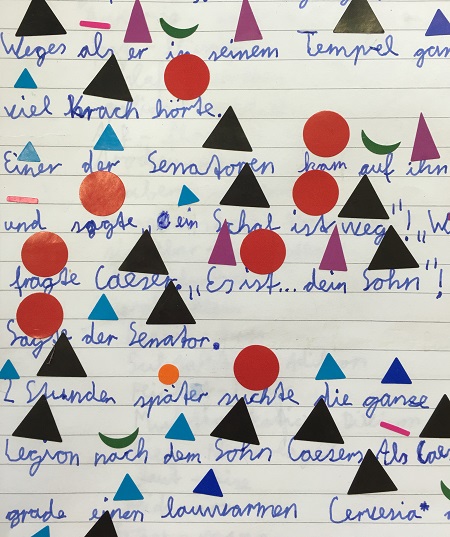 Weges als er in seinem Tempel gan
viel krach hörte.
Einer der Senatoren kam auf ihn
und sagte „ein Schal ist weg"! „W
fragte Caeser. „Es ist... dein Sohn"!
Sagte der Senator.
2 Stunden später suchte die ganze
Legion nach dem Sohn Caesers. Als Cae
grade einen lauwarmen Cervesia*